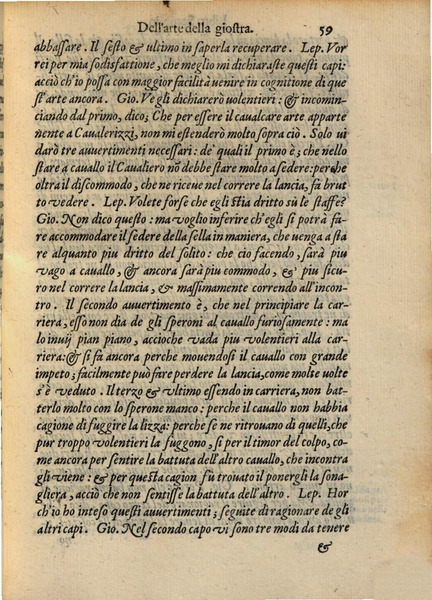 Dell'arte della giostra. 59
abbassare. Il sesto & ultimo in saperla recuperare. Lep. Vor
rei per mia sodisfattione, che meglio mi dichiaraste questi capi:
acciò ch'io possa con maggior facilità venire in cognitione di que
st'arte ancora. Gio. Ve gli dichiarerò volentieri: & incomin-
ciando dal primo, dico; Che per essere il caualcare arte apparte
nente a Caualerizzi, non mi estenderò molto sopra ciò. Solo vi
darò tre auuertimenti necessari: de' quali il primo è; che nello
stare a cauallo il Caualiero nō debbe stare molto a sedere: perche
oltra il discommodo, che ne riceue nel correre la lancia, fà brut
to vedere. Lep. Volete forse che egli stia dritto sù le staffe?
Gio. Non dico questo: ma voglio inferire ch'egli si potrà fa
re accommodare il sedere della sella in maniera, che venga a sta
re alquanto piu dritto del solito: che cio facendo, sarà piu
vago a cauallo, & ancora sarà piu commodo, & piu sicu-
ro nel correre la lancia, & massimamente correndo all'incon-
tro. Il secondo auuertimento è, che nel principiare la car-
riera, esso non dia de gli speroni al cauallo furiosamente: ma
lo inuij pian piano, accioche vada piu volentieri alla car-
riera: & si fà ancora perche mouendosi il cauallo con grande
impeto; facilmente può fare perdere la lancia, come molte volte
s'è veduto. Il terzo & vltimo essendo in carriera, non bat-
terlo molto con lo sperone manco: perche il cauallo non habbia
cagione di fuggire la lizza: perche se ne ritrouano di quelli, che
pur troppo volentieri la fuggono, si per il timor del colpo, co-
me ancora per sentire la battuta dell'altro cauallo, che incontra
gli viene: & per questa cagion fu trouato il ponergli la sona-
gliera, acciò che non sentisse la battuta dell'altro. Lep. Hor
ch'io ho inteso questi auuertimenti; seguite di ragionare de gli
altri capi. Gio. Nel secondo capo vi sono tre modi da tenere
&